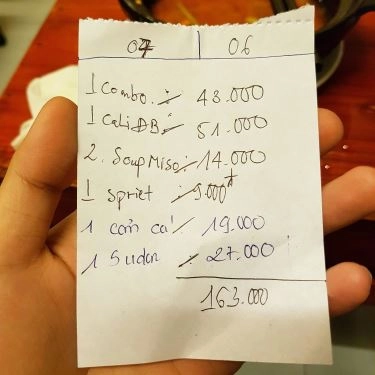 07 | 06
1 Combo 43.000
1 Cali ĐB 51.000
2. Soup Miso 14.000
1 Spriet 9.000đ
1 cơm cá 19.000
1 Sudon 27.000
163.000